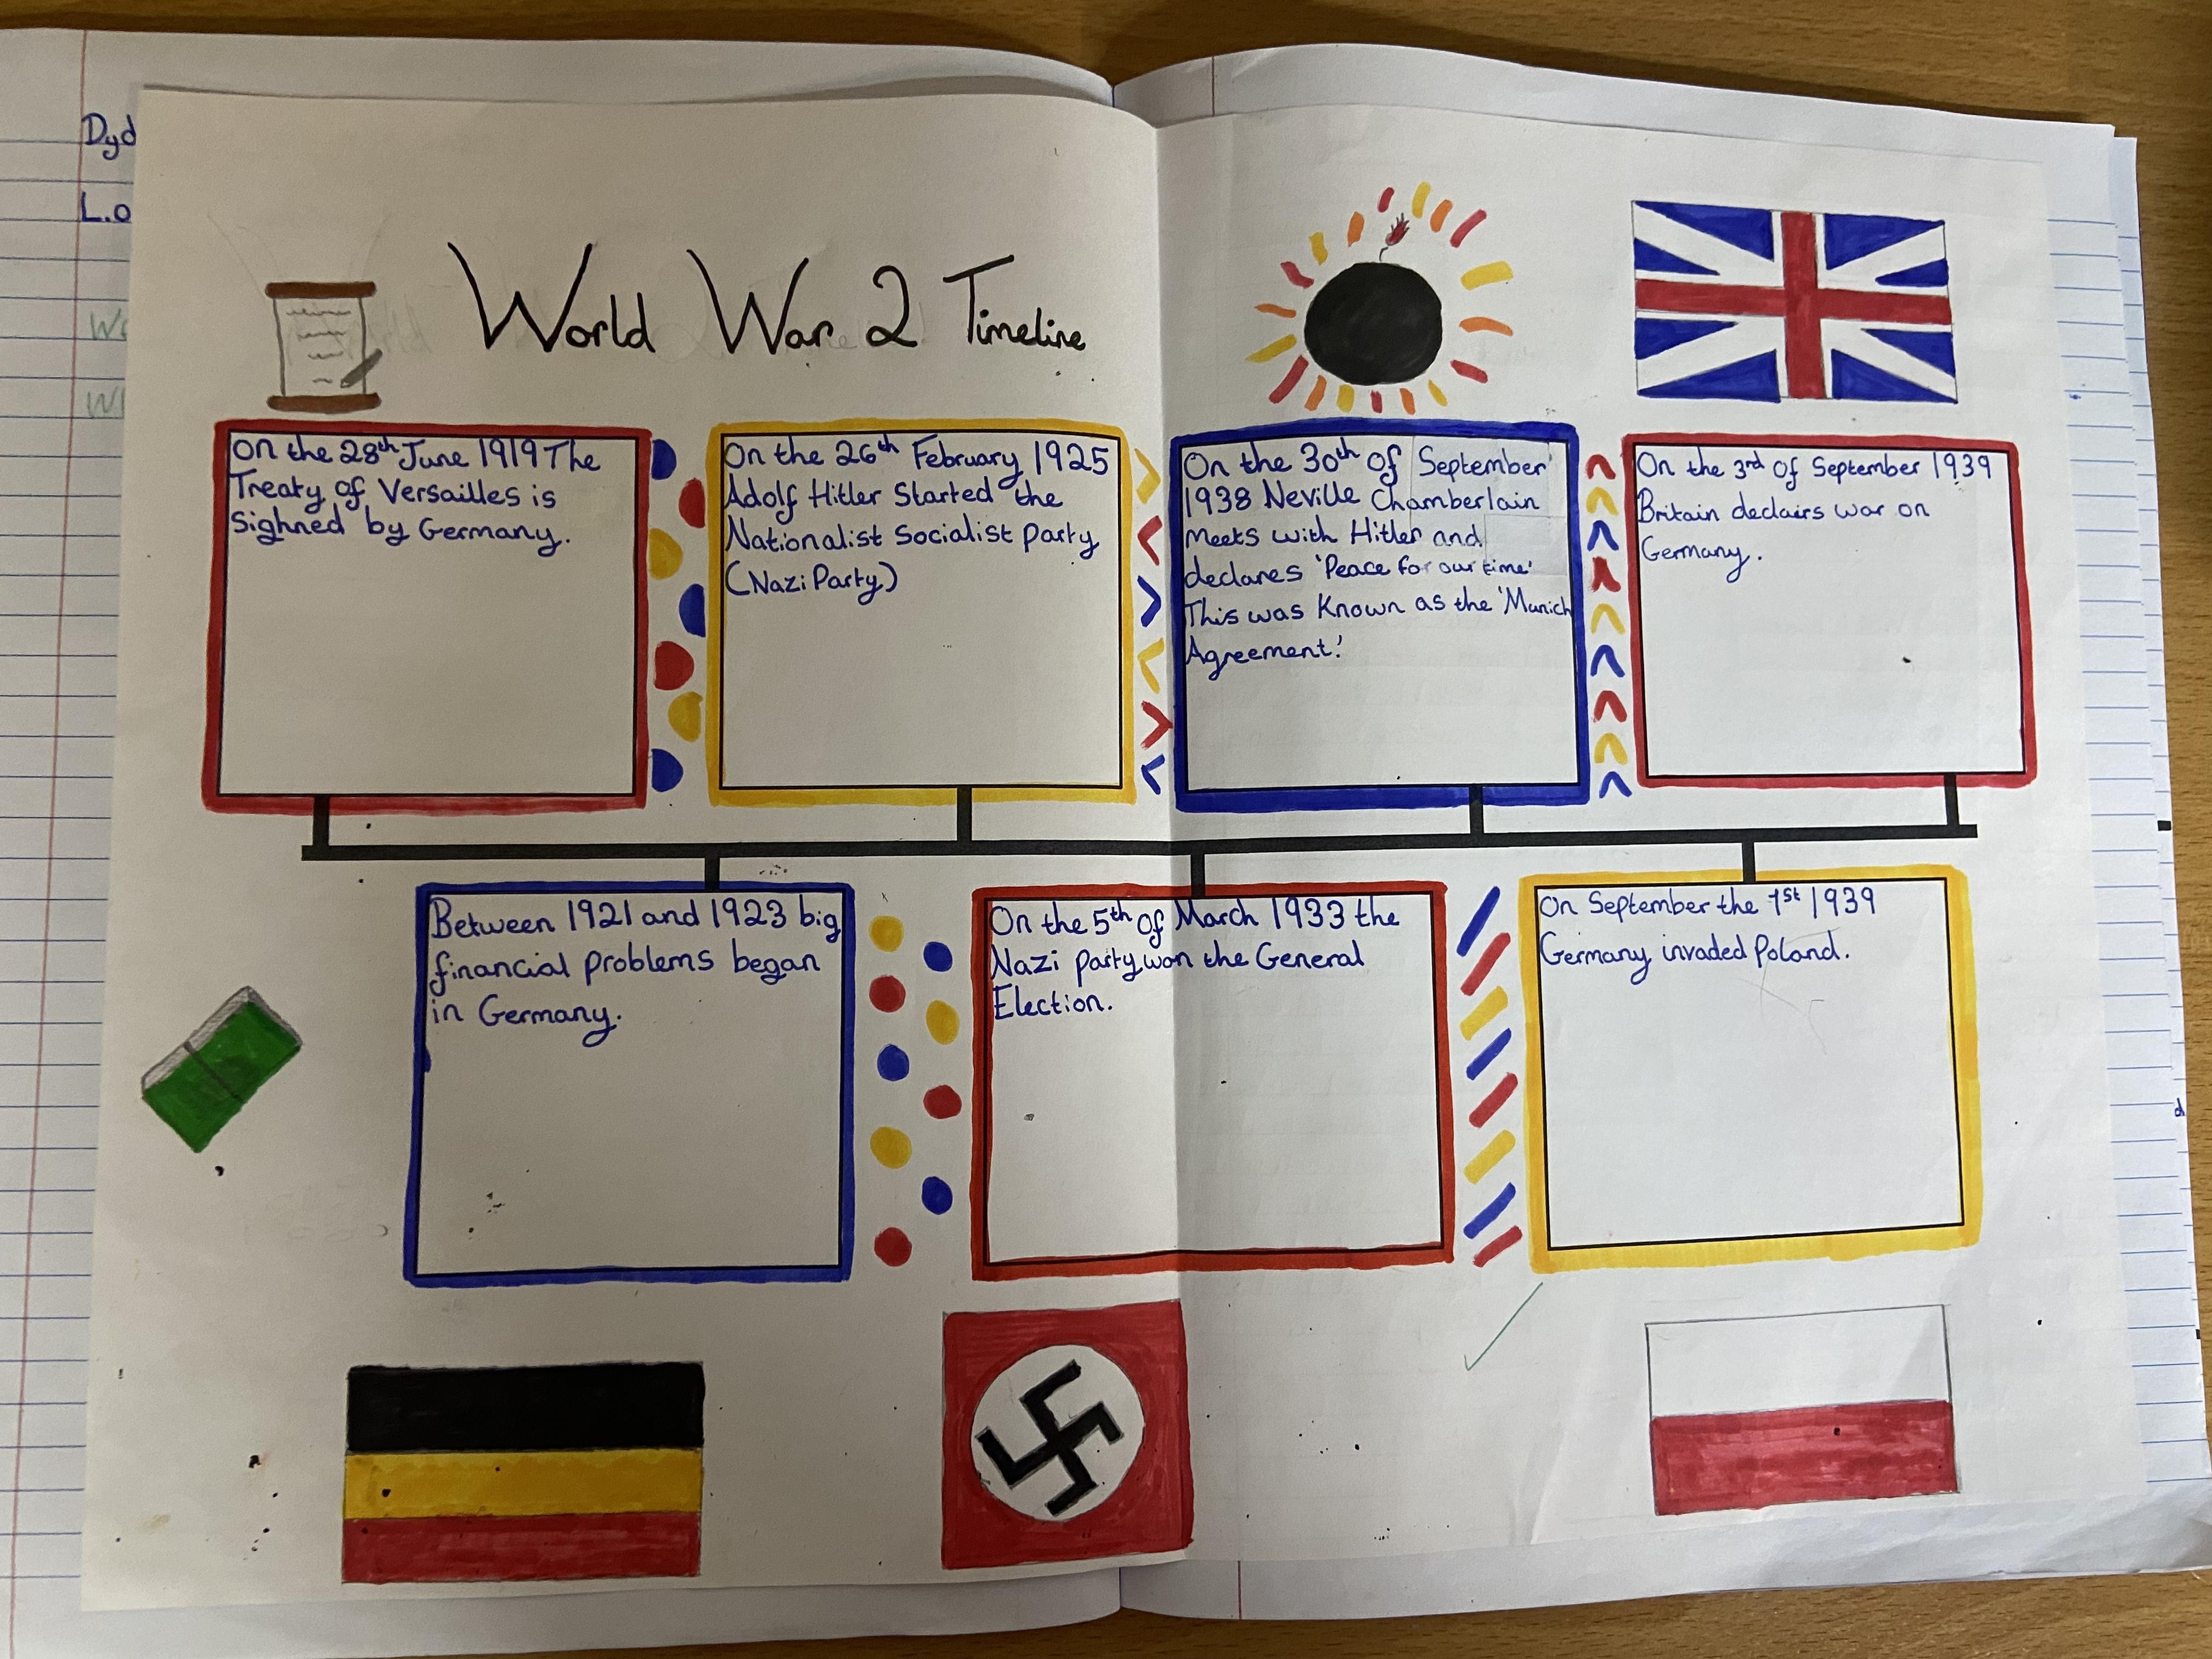 Dyd
L.o
World War 2 Timeline
On the 28th June 1919 The
Treaty of Versailles is
Sighned by Germany.
On the 26th February 1925
Adolf Hitler Started the
Nationalist Socialist Party
(Nazi Party)
On the 30th of September
1938 Neville Chamberlain
meets with Hitler and
declares 'Peace for our time'
This was Known as the 'Munich
Agreement.'
On the 3rd of September 1939
Britain declairs war on
Germany.
Between 1921 and 1923 big
financial problems began
in Germany.
On the 5th of March 1933 the
Nazi party won the General
Election.
On September the 1st 1939
Germany invaded Poland.